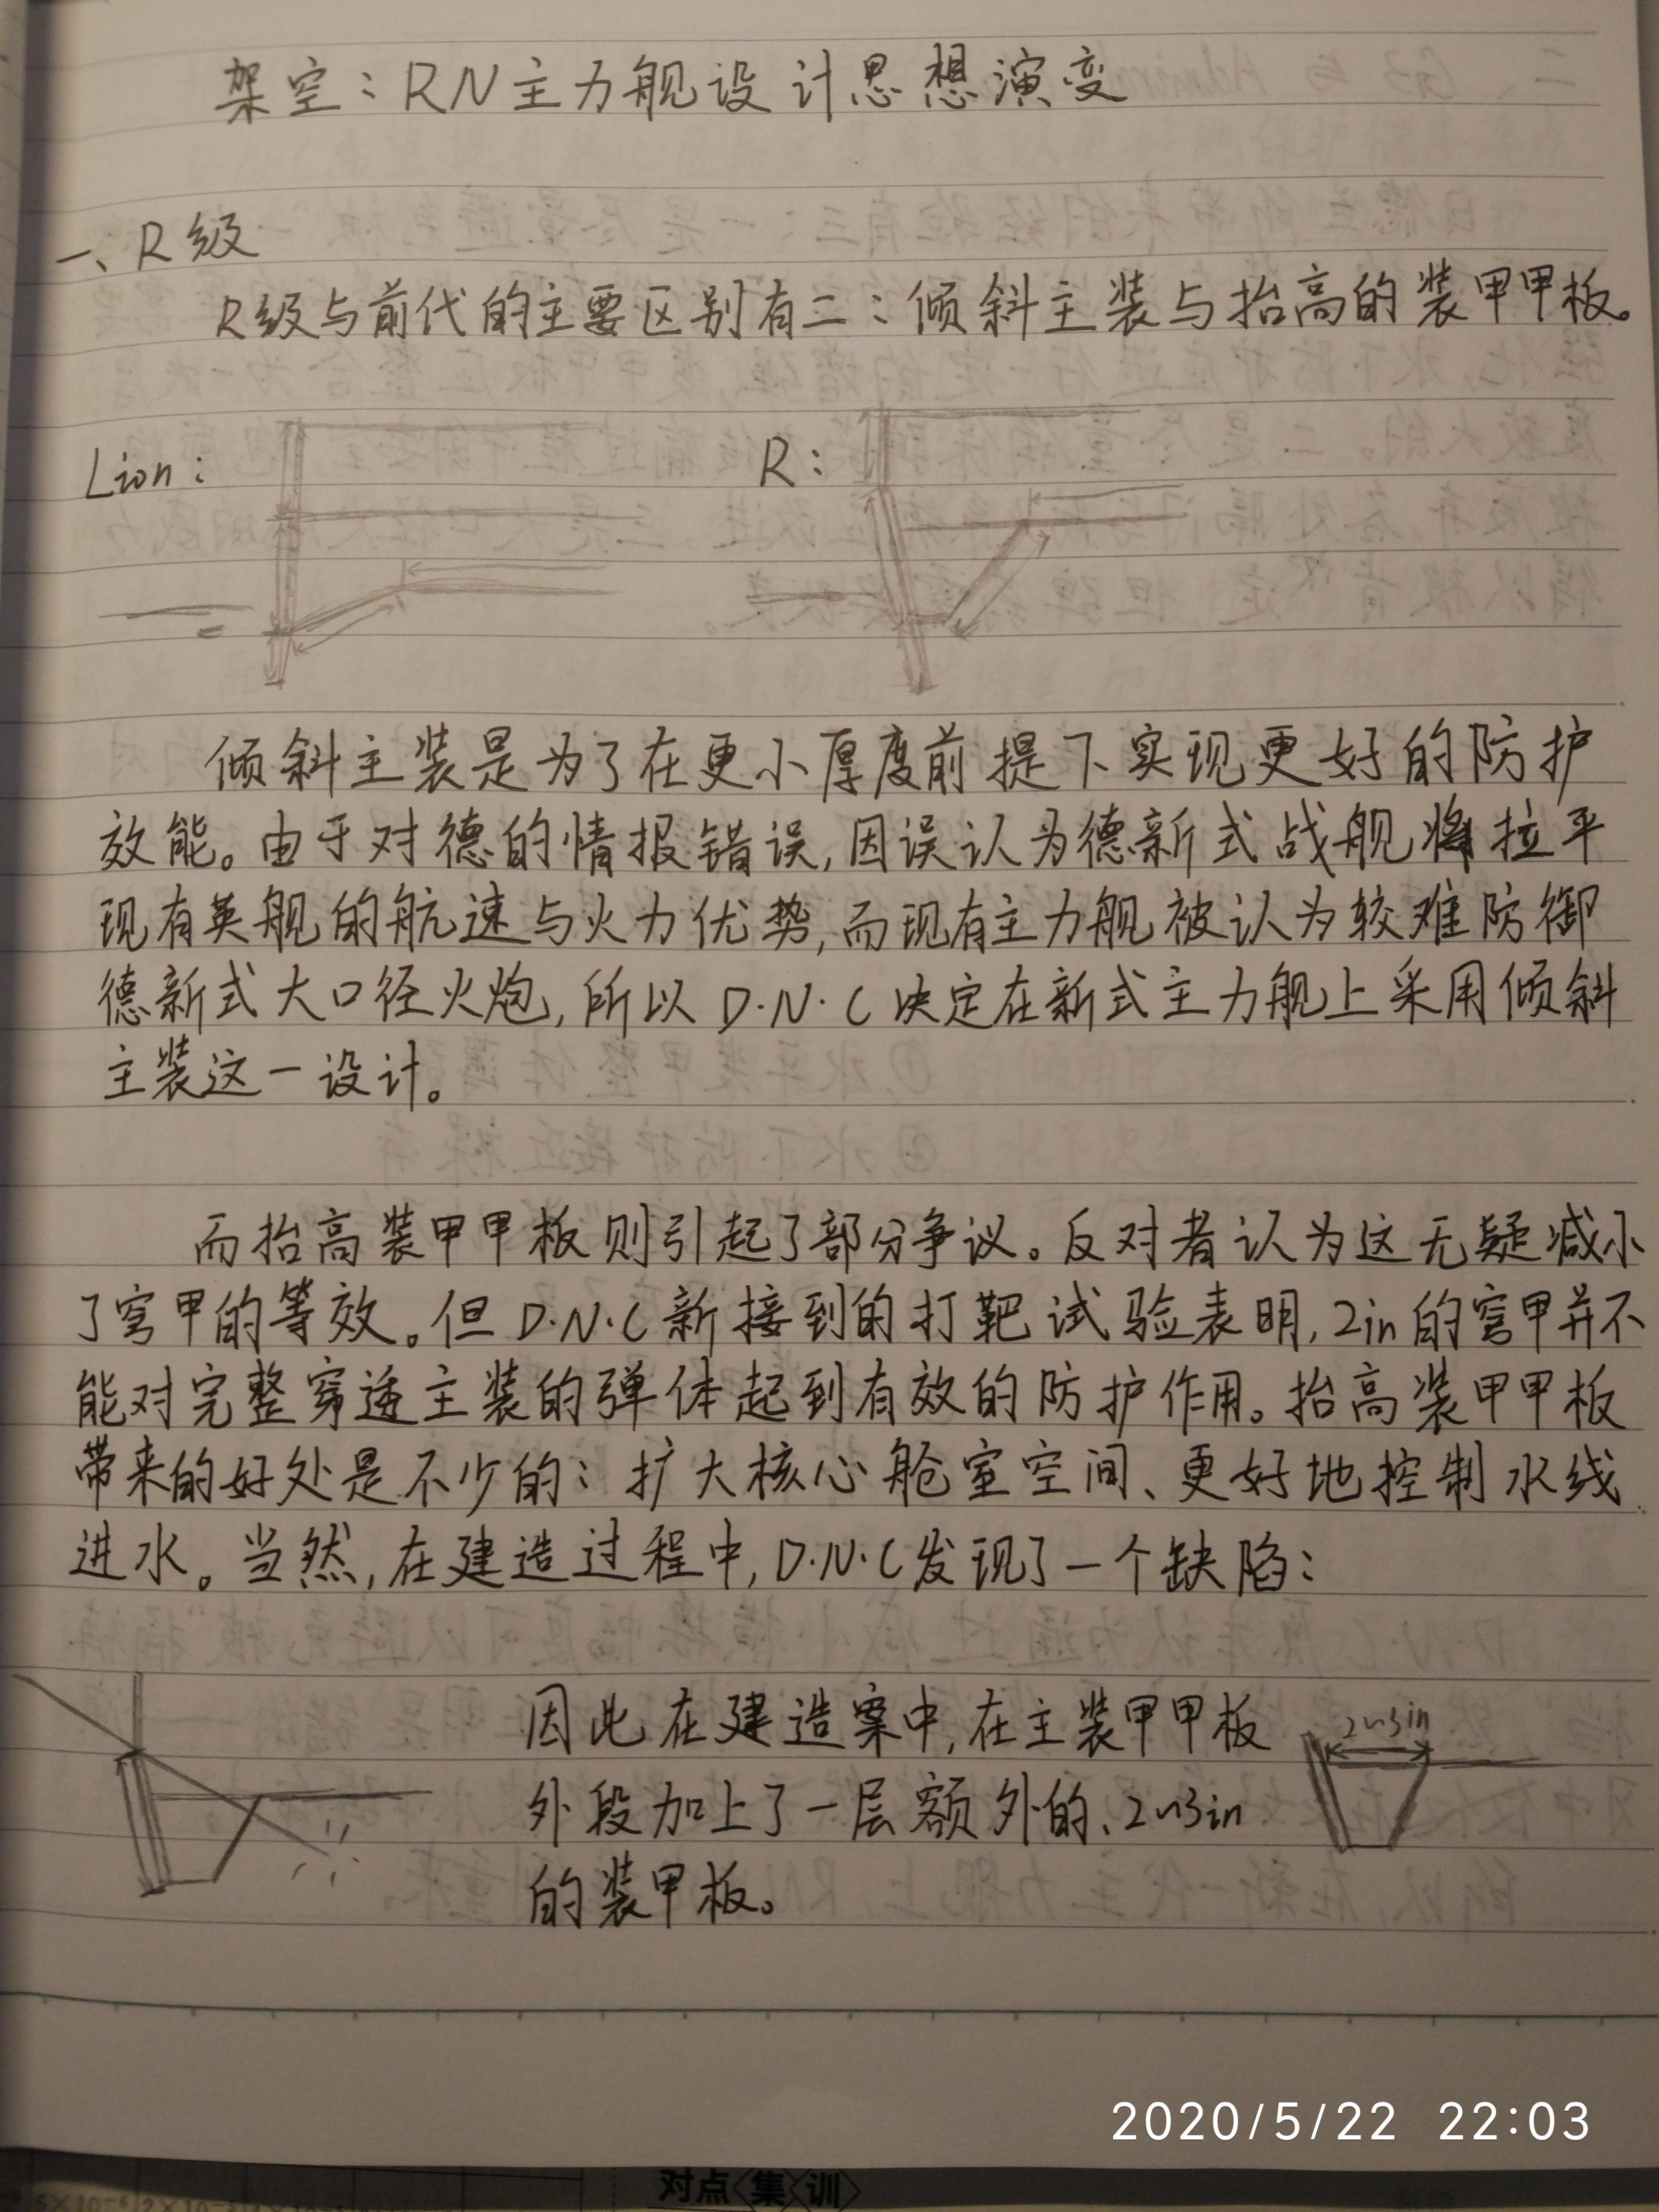 架空：RN主力舰设计思想演变
一、R级
R级与前代的主要区别有二：倾斜主装与抬高的装甲甲板。
Lion：
R：
倾斜主装是为了在更小厚度前提下实现更好的防护
效能。由于对德的情报错误，因误认为德新式战舰将拉平
现有英舰的航速与火力优势，而现有主力舰被认为较难防御
德新式大口径火炮，所以D·N·C决定在新式主力舰上采用倾斜
主装这一设计。
而抬高装甲甲板则引起了部分争议。反对者认为这无疑减小
了穹甲的等效。但D·N·C新接到的打靶试验表明，2in的穹甲并不
能对完整穿透主装的弹体起到有效的防护作用。抬高装甲甲板
带来的好处是不少的：扩大核心舱室空间、更好地控制水线
进水。当然，在建造过程中，D·N·C发现了一个缺陷：
因此在建造案中，在主装甲甲板
2~3in
外段加上了一层额外的、2~3in
的装甲板。
2020/5/22 22:03
对点集训